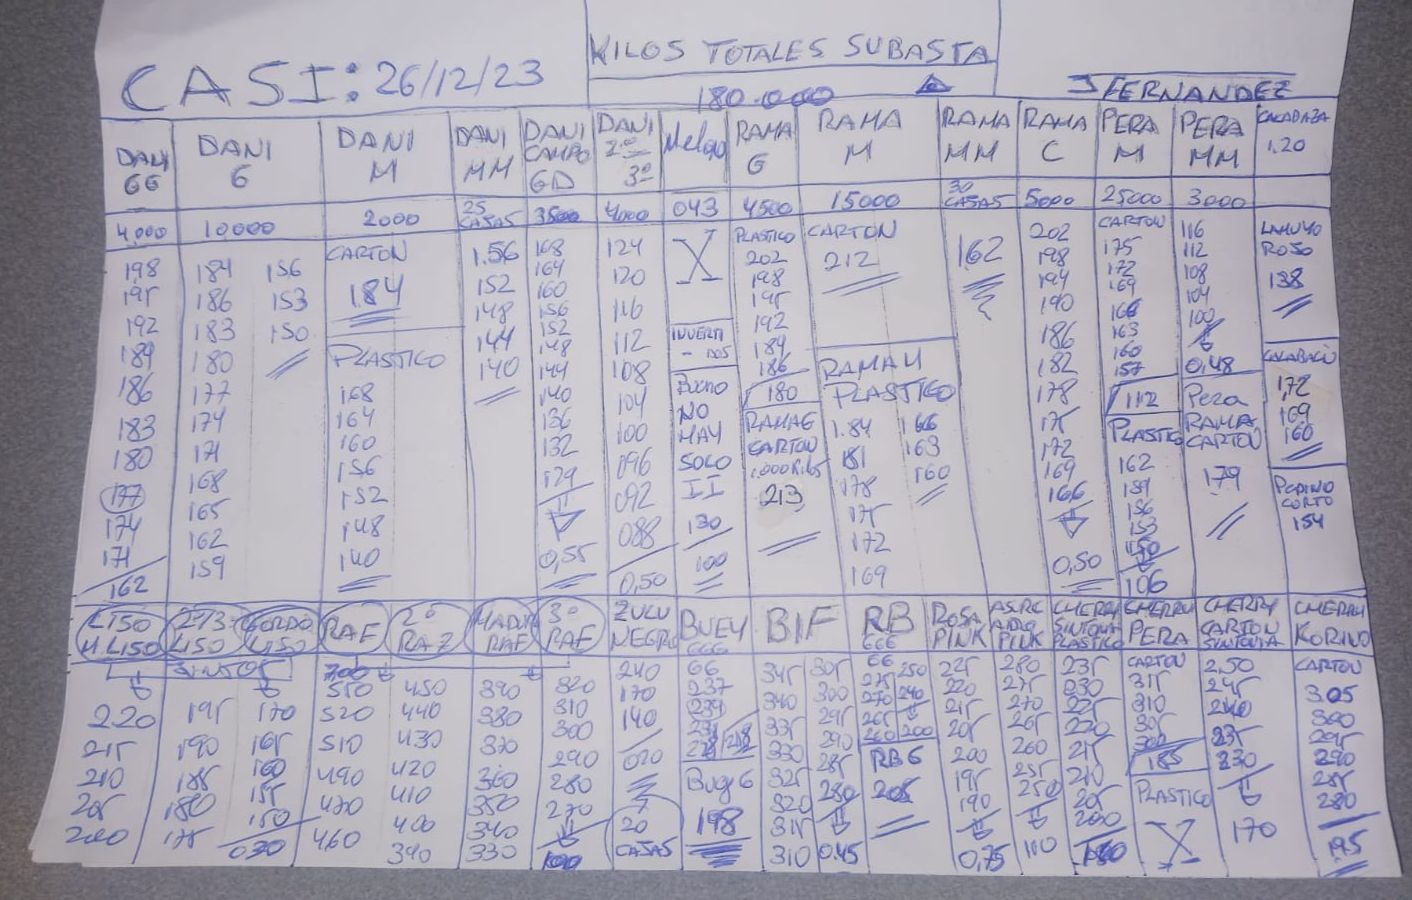 KILOS TOTALES SUBASTA
CASI: 26/12/23
180.000
J FERNANDEZ
DANI GG
DANI G
DANI M
DANI MM
DANI CAMPO GD
DANI 2º 3º
Melon
RAMA G
RAMA M
RAMA MM
RAMA C
PERA M
PERA MM
CALABAZA 1,20
4.000
10000
2000
25 CAJAS
3500
4000
043
4500
15000
30 CAJAS
5000
25000
3000
198
195
192
189
186
183
180
177
174
171
162
184 156
186 153
183 150
180
177
174
171
168
165
162
159
CARTON
184
PLASTICO
168
164
160
156
152
148
140
1.56
152
148
144
140
168
164
160
156
152
148
144
140
136
132
129
0,55
124
120
116
112
108
104
100
096
092
088
0,50
X
INVERTI
- DOS
Bueno
NO
HAY
SOLO
II
130
100
PLASTICO
202
198
195
192
189
186
180
RAMA G
CARTON
1.000 Kilos
213
CARTON
212
RAMA M
PLASTICO
1.84 166
181 163
178 160
175
172
169
162
202
198
194
190
186
182
178
175
172
169
166
0,50
CARTON
175
172
169
166
163
160
157
112
PLASTICO
162
159
156
153
150
106
116
112
108
104
100
0,48
Pera
RAMA
CARTON
179
ROJO
138
CALABACIN
172
169
160
PEPINO
CORTO
154
LISO M.LISO
2ª/3ª LISO
GORDO LISO
RAF
2º RAF
MADUR RAF
3º RAF
ZULU NEGRO
BUEY 666
BIF
RB 666
ROSA PINK
ASURC ADO PINK
CHERRY SINTONIA PLASTICO
CHERRY PERA
CHERRY CARTON SINTONIA
CHERRY KORINO
220
215
210
205
200
195 170
190 165
185 160
180 155
175 150
030
550
520
510
490
470
460
450
440
430
420
410
400
390
390
380
370
360
350
340
330
320
310
300
290
280
270
100
240
170
140
070
20
CAJAS
66
237
234
Buey G
198
345 305
340 300
335 295
330 290
325 285
320 280
315
310 0.45
66 250
275 240
270
265
260 200
RB G
205
225
220
215
205
200
195
190
0,75
280
275
270
265
260
255
250
100
235
230
225
220
215
210
205
200
CARTON
315
310
305
300
185
PLASTICO
X
2,50
245
240
235
230
170
CARTON
305
300
295
290
285
280
195